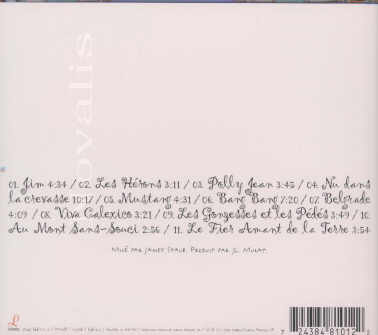 ovalis
01. Jim 4:34 / 02. Les Hérons 3:11 / 03. Polly Jean 3:45 / 04. Nu dans
la crevasse 10:17 / 05. Mustang 4:31 / 06. Bang Bang 7:20 / 07. Belgrade
4:09 / 08. Viva Calexico 3:21 / 09. Les Gonzesses et les Pédés 3:49 / 10.
Au Mont Sans-Souci 2:56 / 11. Le Fier Amant de la Terre 3:54
Mixé par Janet Produit par JL. Murat.
24384 81012